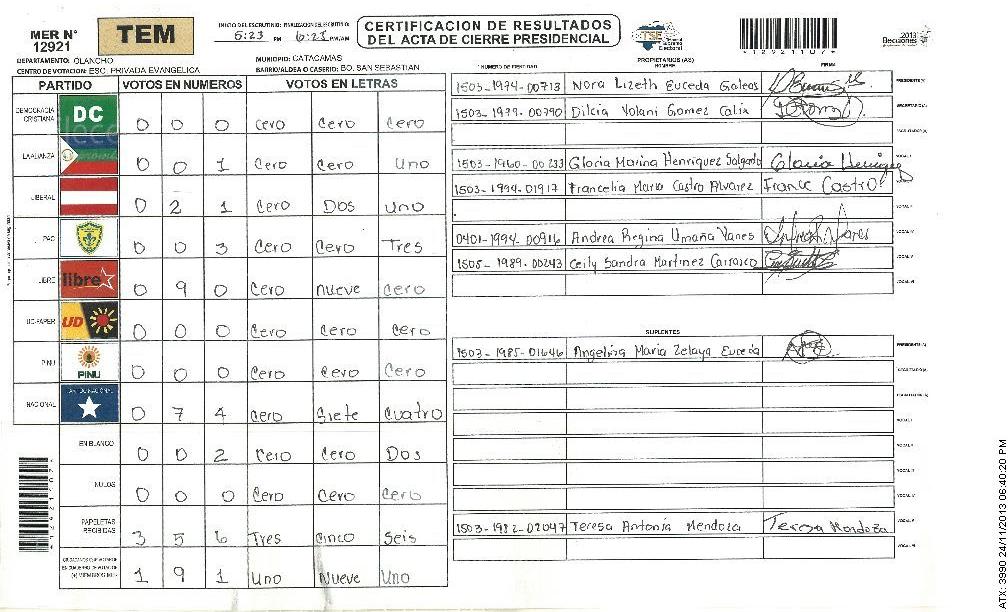 MER N° 12921
TEM
INICIO DEL ESCRUTINIO: FINALIZACION DEL ESCRUTINIO:
5:23 PM 6:23 PM/AM
CERTIFICACION DE RESULTADOS
DEL ACTA DE CIERRE PRESIDENCIAL
TSE Tribunal Supremo Electoral
*12921107*
2013 Elecciones
DEPARTAMENTO: OLANCHO
MUNICIPIO: CATACAMAS
CENTRO DE VOTACION: ESC. PRIVADA EVANGELICA
BARRIO/ALDEA O CASERIO: BO. SAN SEBASTIAN
PARTIDO VOTOS EN NUMEROS VOTOS EN LETRAS
DEMOCRACIA CRISTIANA DC 0 0 0 Cero Cero Cero
LA ALIANZA 0 0 1 Cero Cero Uno
LIBERAL 0 2 1 Cero Dos Uno
PAC 0 0 3 Cero Cero Tres
LIBRE libre 0 9 0 Cero nueve cero
UD-FAPER UD 0 0 0 Cero Cero Cero
PINU PINU 0 0 0 Cero Cero Cero
NACIONAL PARTIDO NACIONAL 0 7 4 Cero Siete Cuatro
EN BLANCO 0 0 2 Cero Cero Dos
NULOS 0 0 0 Cero Cero Cero
PAPELETAS RECIBIDAS 3 5 6 Tres Cinco Seis
1 9 1 Uno Nueve Uno
PROPIETARIOS (AS)
NUMERO DE IDENTIDAD NOMBRE FIRMA
1503-1974-00713 Nora Lizeth Euceda Galeas PRESIDENTE(A)
1503-1979-00790 Dilcia Yolani Gomez Calix SECRETARIO(A)
ESCRUTADOR(A)
1503-1960-00233 Gloria Marina Henriquez Salgado Gloria Henriquez VOCAL I
1503-1994-01917 Francelia Maria Castro Alvarez France Castro VOCAL II
VOCAL III
0401-1994-00916 Andrea Regina Umaña Vanes VOCAL IV
1505-1989-00243 Ceily Sandra Martinez Carrasco VOCAL V
VOCAL VI
SUPLENTES
1503-1985-01646 Angelina Maria Zelaya Euceda PRESIDENTE(A)
SECRETARIO(A)
ESCRUTADOR(A)
VOCAL I
VOCAL II
VOCAL III
VOCAL IV
1503-1982-02047 Teresa Antonia Mendoza Teresa Mendoza VOCAL V
VOCAL VI
*12921107*
ATX: 3990 24/11/2013 06:40:20 PM